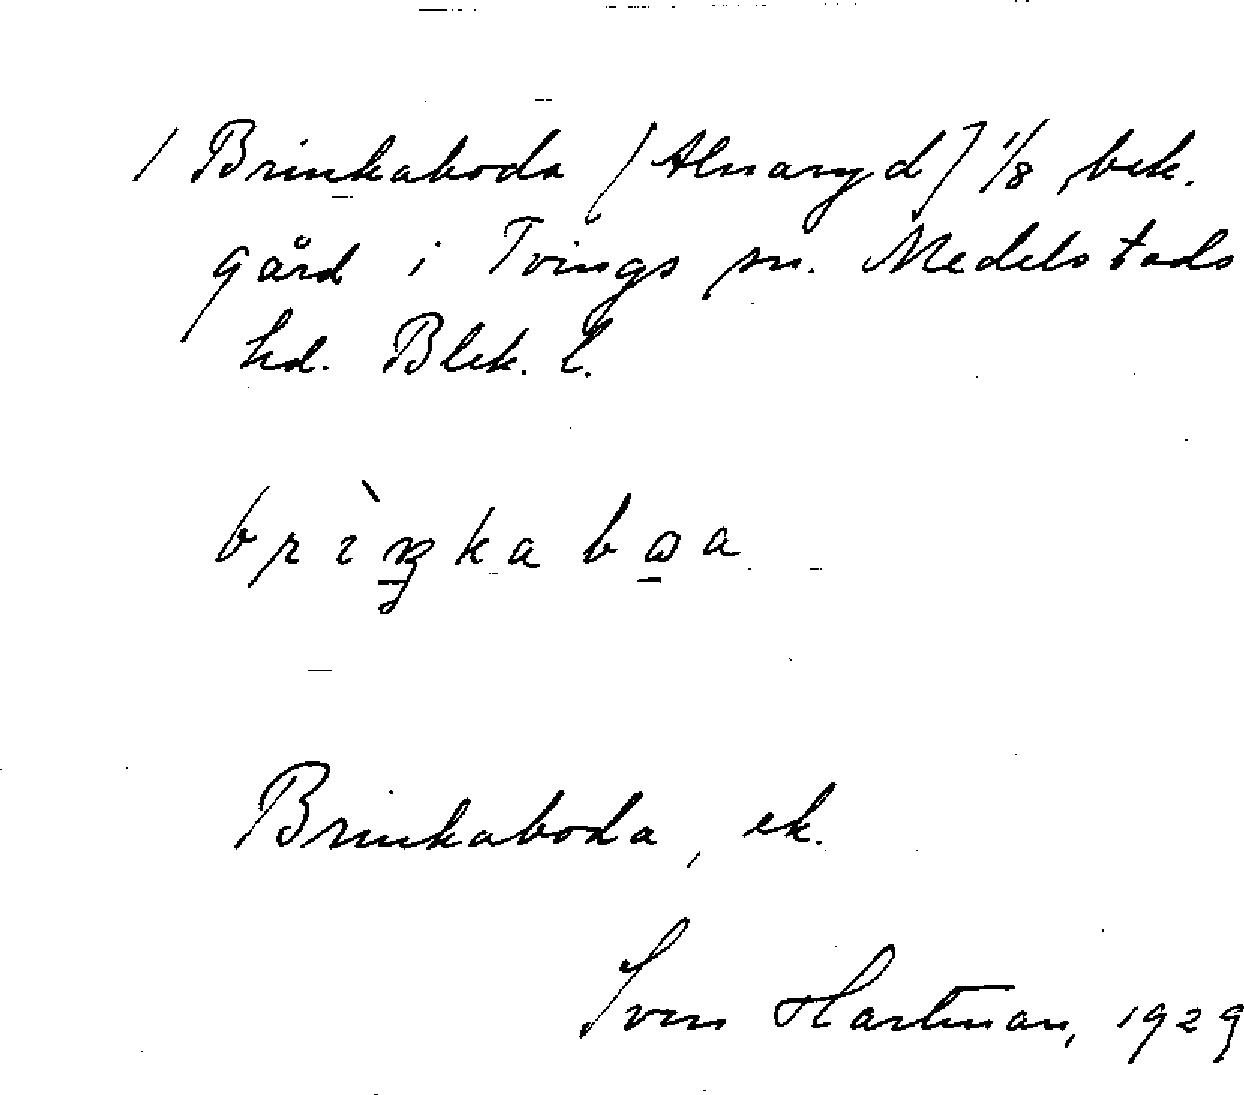 / Brinkaboda [Alnaryd] 1/8, bek.
gård i Tvings sn. Medelstads
hd. Blek. l.
brìŋkaboa
Brinkaboda, ek.
Sven Hartman, 1929